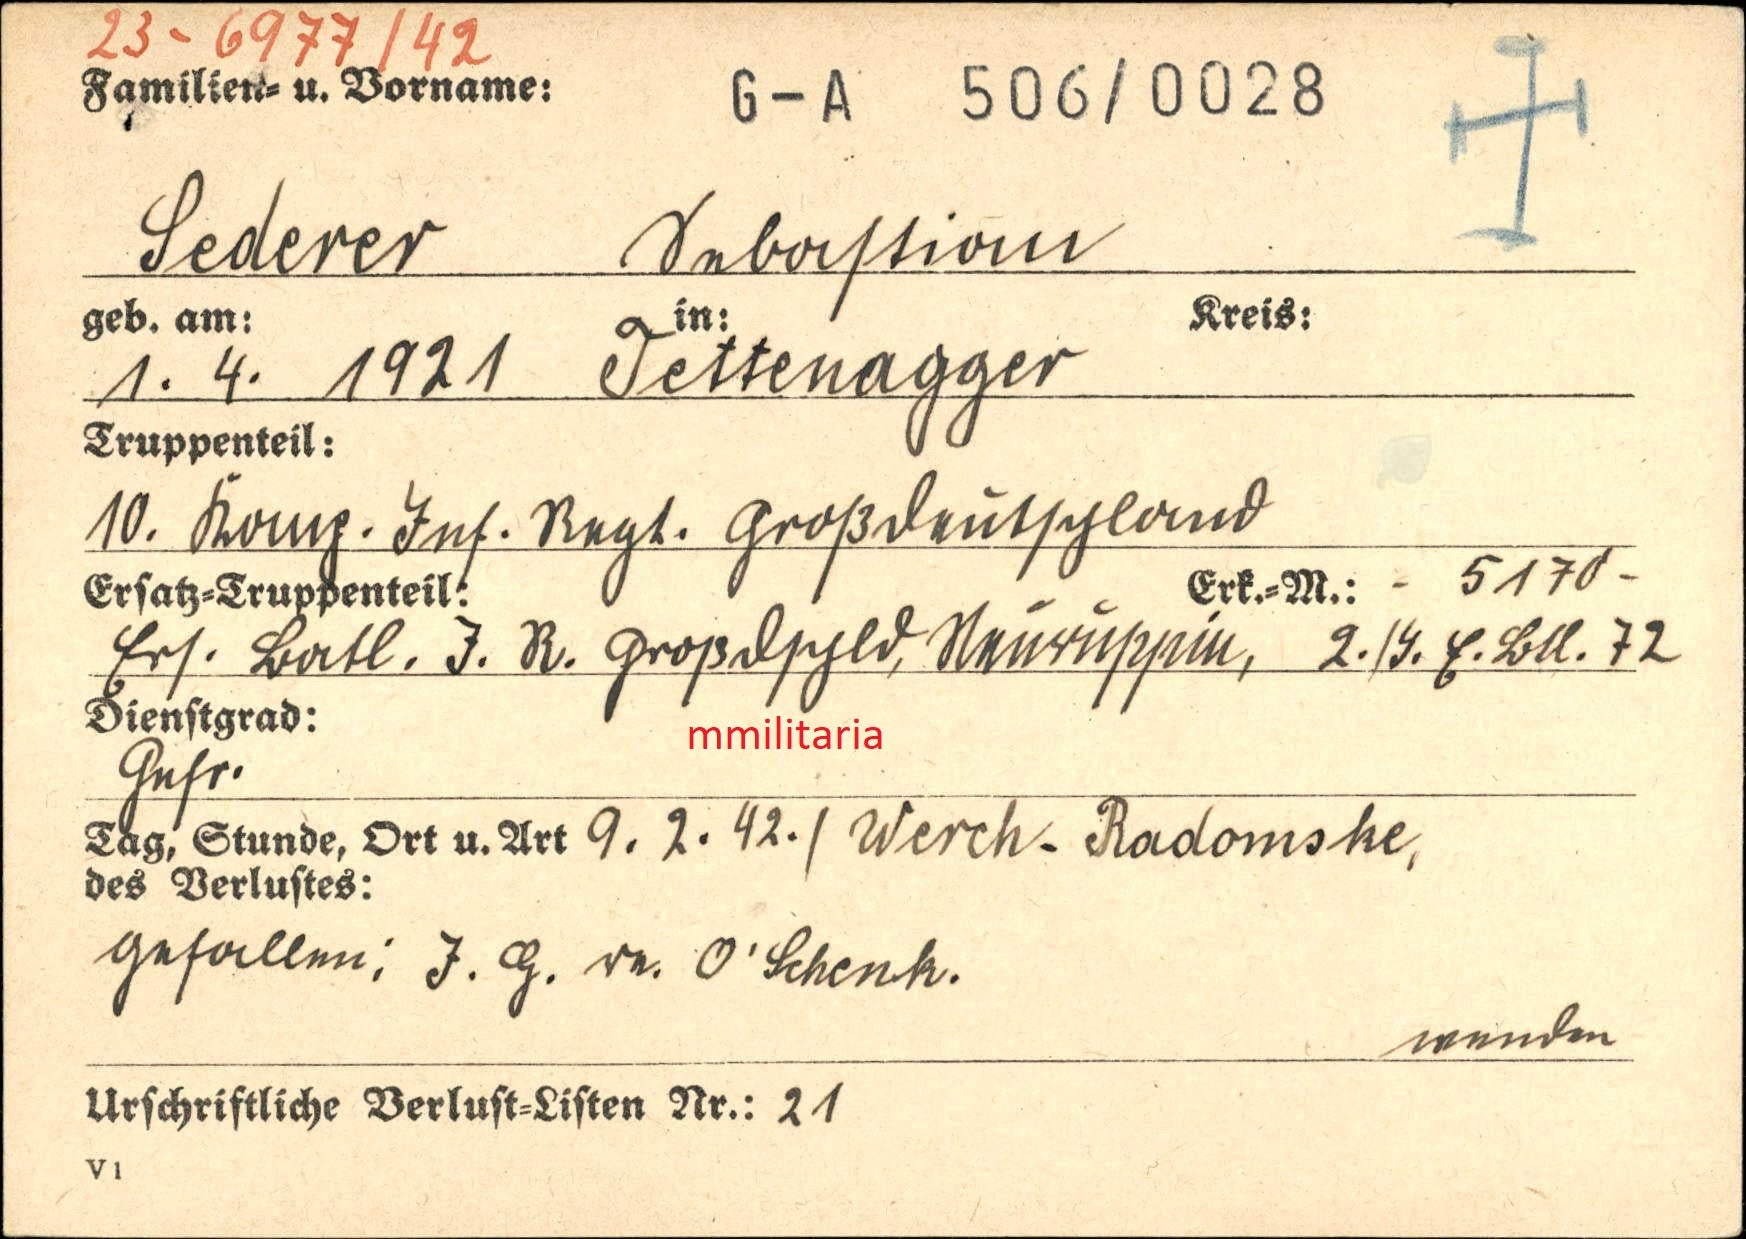 23-6977/42
Familien- u. Vorname: G-A 506/0028
Sederer Sebastian
geb. am: in: Kreis:
1. 4. 1921 Tettenagger
Truppenteil:
10. Komp. Inf. Regt. Großdeutschland
Ersatz-Truppenteil: Erk.-M.: - 5170 -
Ers. Batl. I. R. Großdschld, Neuruppin, 2./I. E. Btl. 72
Dienstgrad:
mmilitaria
Gefr.
Tag, Stunde, Ort u. Art 9. 2. 42. / Werch-Radomske,
des Verlustes:
gefallen; I. G. re. O'Schenk.
wenden
Urschriftliche Verlust-Listen Nr.: 21
V 1